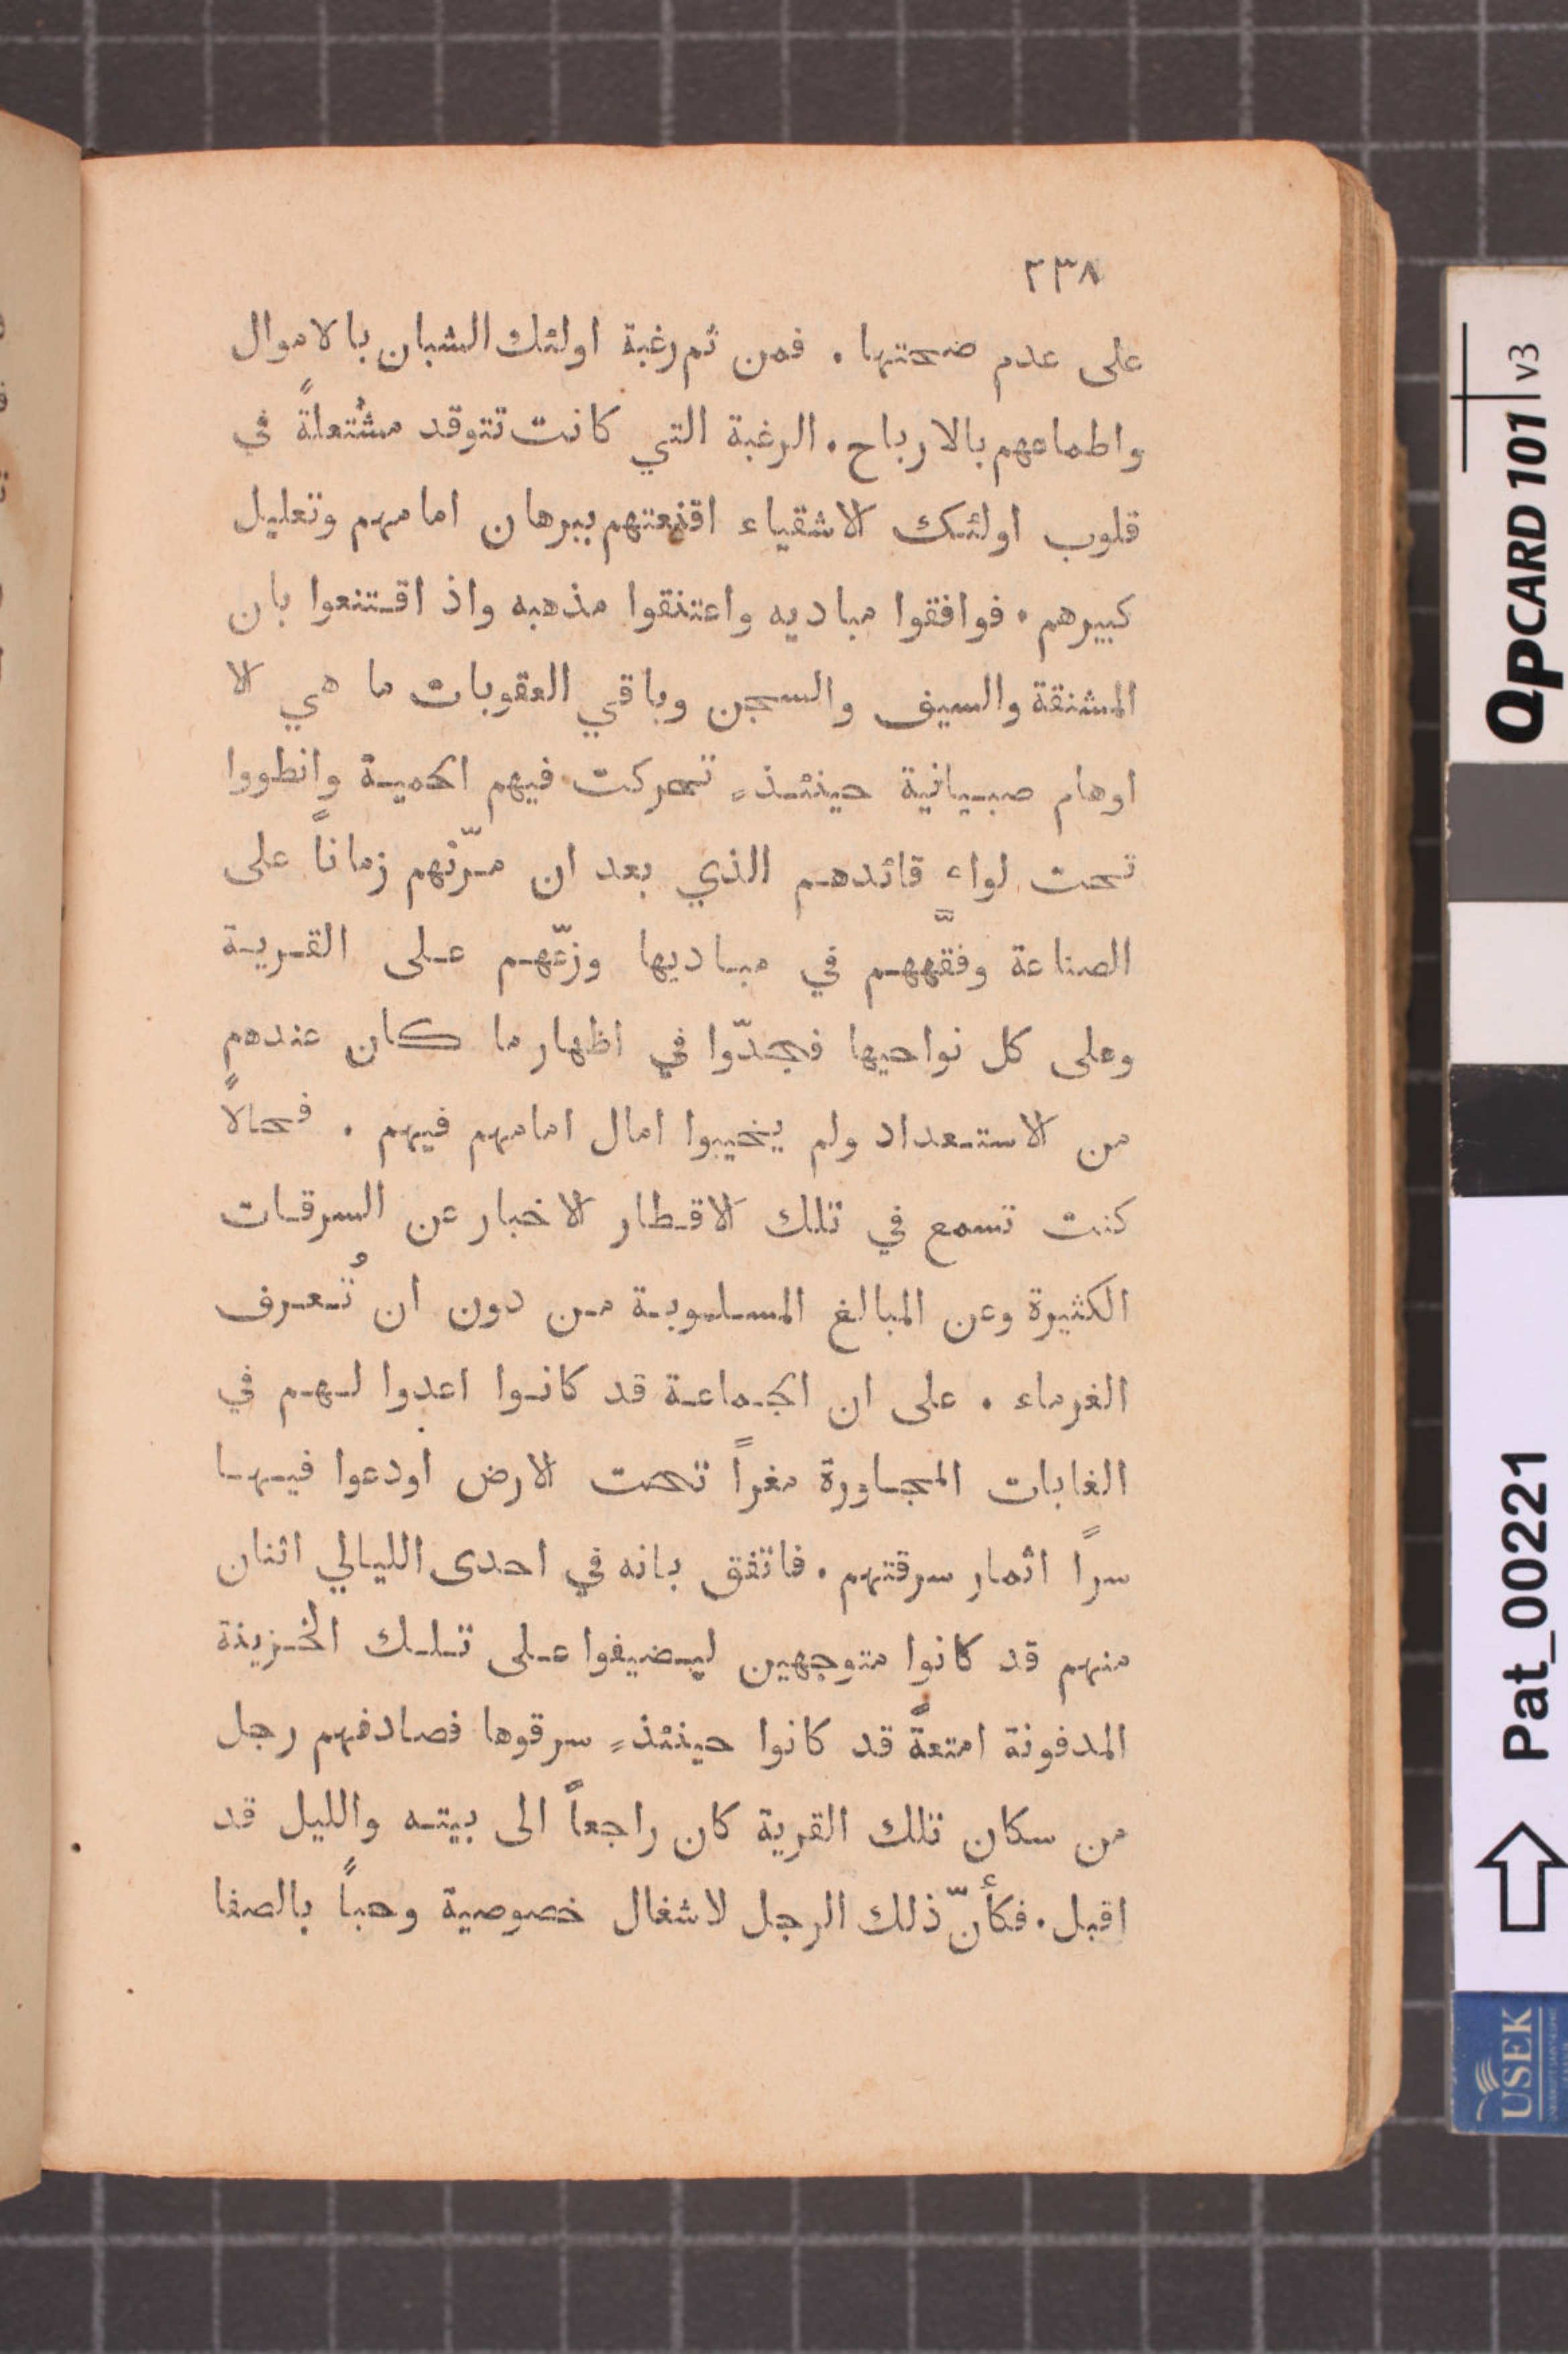 ٢٣٨
على عدم ضحتها . فمن ثم رغبة اولئك الشبان بالاموال
واطماعهم بالارباح . الرغبة التي كانت تتوقد مشتعلةً في
قلوب اولئك الاشقياء اقنعتهم ببرهان امامهم وتعليل
كبيرهم . فوافقوا مباديه واعتنقوا مذهبه واذ اقتنعوا بان
المشنقة والسيف والسجن وباقي العقوبات ما هي الا
اوهام صبيانية حينئذٍ تحركت فيهم الحمية وانطووا
تحت لواء قائدهم الذي بعد ان مرّنهم زماناً على
الصناعة وفقّههم في مباديها وزّعهم على القرية
وعلى كل نواحيها فجدّوا في اظهار ما كان عندهم
من الاستعداد ولم يخيبوا امال امامهم فيهم . فحالاً
كنت تسمع في تلك الاقطار الاخبار عن السرقات
الكثيرة وعن المبالغ المسلوبة من دون ان تُعرف
الغرماء . على ان الجماعة قد كانوا اعدوا لهم في
الغابات المجاورة مغراً تحت الارض اودعوا فيها
سراً اثمار سرقتهم . فاتفق بانه في احدى الليالي اثنان
منهم قد كانوا متوجهين ليضيفوا على تلك الخزينة
المدفونة امتعةً قد كانوا حينئذٍ سرقوها فصادفهم رجل
من سكان تلك القرية كان راجعاً الى بيته والليل قد
اقبل . فكأنّ ذلك الرجل لاشغال خصوصية وحباً بالصفا
QPCARD 101 v3
Pat_00221
USEK